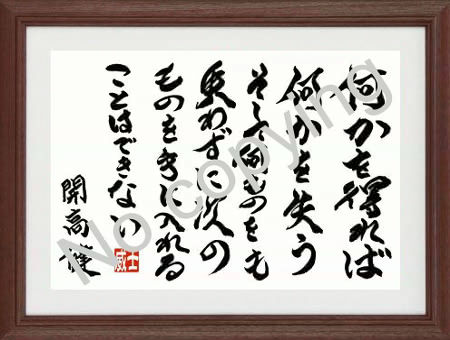 何かを得れば
何かを失う
そして何ものをも
失わずに次の
ものを手に入れる
ことはできない
開高健
No copying